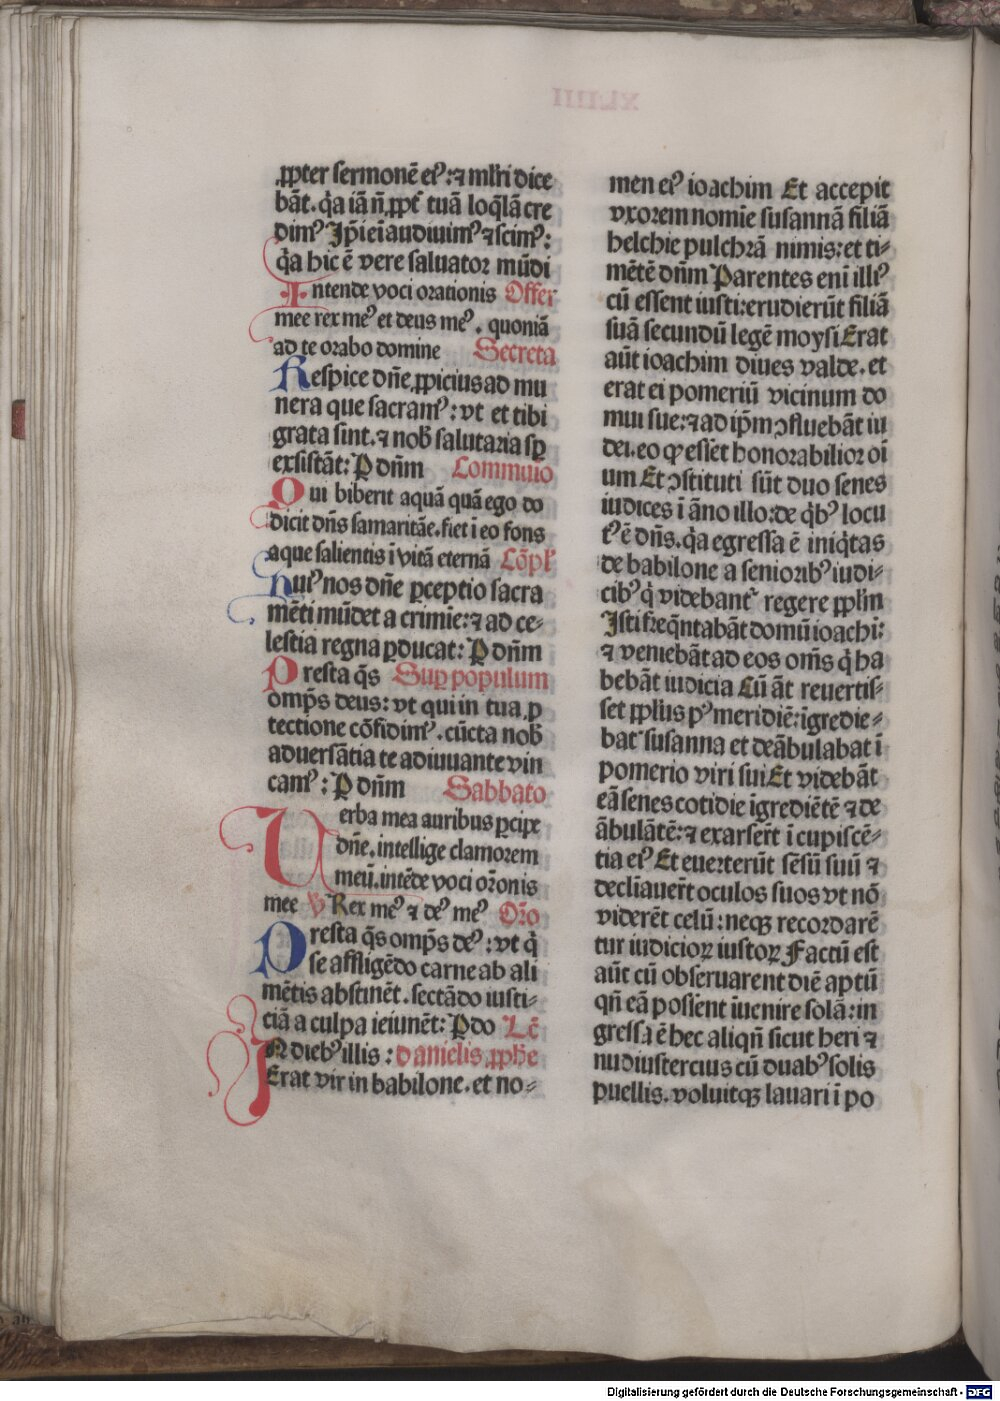 ꝓpter sermonē eiꝰ: ⁊ mlʼri dice
bāt. q̇a iā nͦ. ꝓpt̄ tuā loq̄lā cre
dimꝰ Ip̄i eī audiuimꝰ ⁊ scimꝰ:
q̇a hic ē vere saluator mūdi
Intende voci orationis Offer
mee rex meꝰ et deus meꝰ. quoniā
ad te orabo domine Secreta
Respice dn̄e ꝓpicius ad mu
nera que sacramꝰ: vt et tibi
grata sint. ⁊ nob̄ salutaria sꝑ
exsistāt: P dn̄m Commuīo
Qui biberit aquā quā ego do
dicit dn̄s samaritāe. fiet ī eo fons
aque salientis ī vitā eternā Cōpl̄
Huiꝰ nos dn̄e ꝑceptio sacra
mēti mūdet a crimīe: ⁊ ad ce⸗
lestia regna ꝑducat: P dn̄m
Presta q̄s Suꝑ populum
omp̄s deus: vt qui in tua ꝓ
tectione cōfidimꝰ. cūcta nob̄
aduersātia te adiuuante vin
camꝰ: P dn̄m Sabbato
Verba mea auribus ꝑcipe
dn̄e. intellige clamorem
meū. intēde voci or̄onis
mee ℣ Rex meꝰ ⁊ deꝰ meꝰ Or̄o
Presta q̄s omp̄s deꝰ: vt q̇
se affligēdo carne ab ali
mētis abstinēt. sectādo iusti⸗
ciā a culpa ieiunēt: P do Lc̄
In diebꝰ illis: danielis ꝓph̄e
Erat vir in babilone. et no⸗
men eiꝰ ioachim Et accepit
vxorem nomīe susannā filiā
helchie pulchrā nimis: et ti⸗
mētē dn̄m Parentes enī illiꝰ
cū essent iusti: erudierūt filiā
suā secundū legē moysi Erat
aūt ioachim diues valde. et
erat ei pomeriū vicinum do
mui sue: ⁊ ad ip̄m ꝯfluebāt iu
dei. eo ꝙ ess̄et honorabilior oī
um Et ꝯstituti sūt duo senes
iudices ī āno illo: de q̇bꝰ locu
tꝰ ē dn̄s. q̇a egressa ē iniq̇tas
de babilone a seniorībꝰ iudi⸗
cibꝰ q̇ videbantᷣ regere ppl̄m
Isti freq̄ntabāt domū ioachī:
⁊ veniebāt ad eos om̄s q̇ ha
bebāt iudicia Cū āt reuertis⸗
set ppl̄us pꝰ meridiē: īgredie⸗
batᷣ susanna et deābulabat ī
pomerio viri sui Et videbāt
eā senes cotidie īgrediētē ⁊ de
ābulātē: ⁊ exarser̄t ī cupiscē⸗
tia eiꝰ Et euerterūt sēsū suū ⁊
declīauer̄t oculos suos vt nō
viderēt celū: neqꝫ recordarē
tur iudicioꝝ iustoꝝ Factū est
aūt cū obseruarent diē aptū
qn̄ eā possent īuenire solā: in
gressa ē hec aliqn̄ sicut heri ⁊
nudiustercius cū duabꝰ solis
puellis. voluitqꝫ lauari ī po
Digitalisierung gefördert durch die Deutsche Forschungsgemeinschaft - DFG